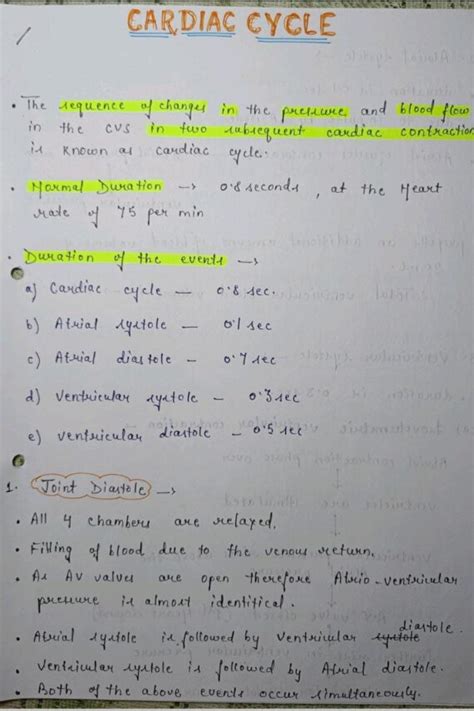 CARDIAC CYCLE
• The sequence of changes in the pressure and blood flow
in the CVS in two subsequent cardiac contraction
is known as cardiac cycle.
• Normal Duration → 0.8 seconds, at the Heart
rate of 75 per min
• Duration of the events →
a) Cardiac cycle — 0.8 sec.
b) Atrial systole — 0.1 sec
c) Atrial diastole — 0.7 sec
d) Ventricular systole — 0.3 sec
e) ventricular diastole — 0.5 sec
1. Joint Diastole →
• All 4 chambers are relaxed.
• Filling of blood due to the venous return.
• As AV valves are open therefore Atrio-ventricular
pressure is almost identifical.
• Atrial systole is followed by ventricular systole diastole.
• Ventricular systole is followed by Atrial diastole.
• Both of the above events occur simultaneously.